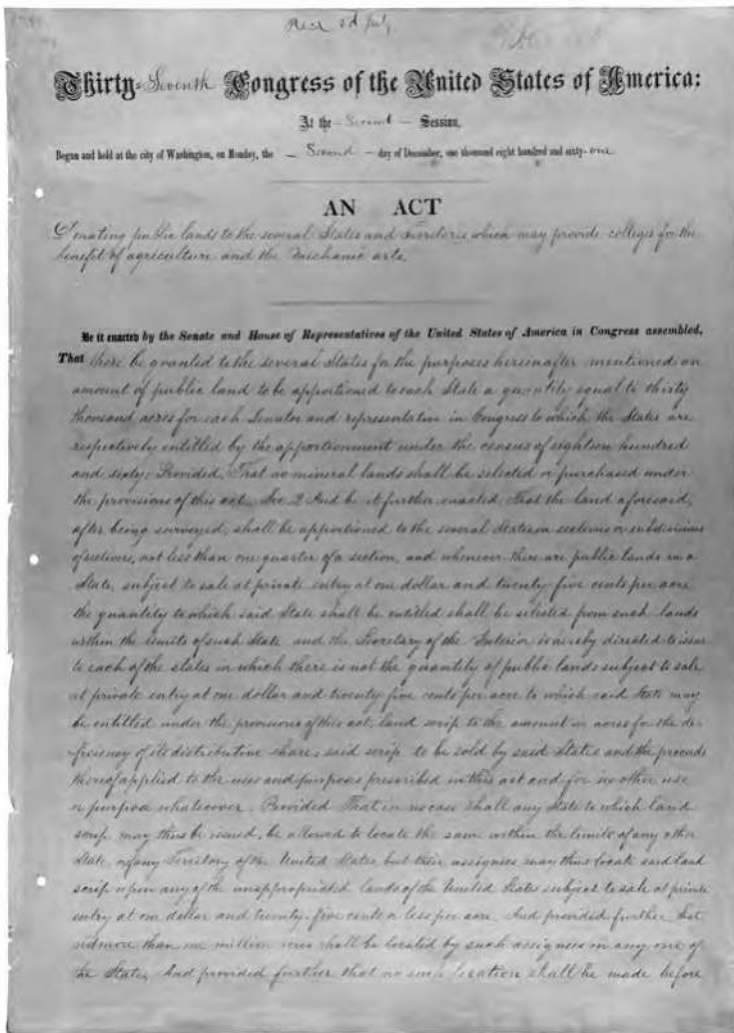 Thirty-Seventh Congress of the United States of America:
At the Second Session,
Begun and held at the city of Washington, on Monday, the Second day of December, one thousand eight hundred and sixty-one
AN ACT
Donating public lands to the several States and Territories which may provide colleges for the
benefit of agriculture and the mechanic arts.
Be it enacted by the Senate and House of Representatives of the United States of America in Congress assembled,
That there be granted to the several States for the purposes hereinafter mentioned an
amount of public land to be apportioned to each State a quantity equal to thirty
thousand acres for each Senator and representative in Congress to which the States are
respectively entitled by the apportionment under the census of eighteen hundred
and sixty: Provided, That no mineral lands shall be selected or purchased under
the provisions of this act. Sec 2 And be it further enacted, That the land aforesaid,
after being surveyed, shall be apportioned to the several States in sections or subdivisions
of sections, not less than one quarter of a section, and whenever there are public lands in a
State, subject to sale at private entry at one dollar and twenty-five cents per acre
the quantity to which said State shall be entitled shall be selected from such lands
within the limits of such State and the Secretary of the Interior is hereby directed to issue
to each of the states in which there is not the quantity of public lands subject to sale
at private entry at one dollar and twenty five cents per acre to which said State may
be entitled under the provisions of this act, land scrip to the amount in acres for the de-
ficiency of its distributive share; said scrip to be sold by said States and the proceeds
thereof applied to the uses and purposes prescribed in this act and for no other use
or purpose whatsoever. Provided That in no case shall any State to which land
scrip may thus be issued, be allowed to locate the same within the limits of any other
State, or of any Territory of the United States, but their assignees may thus locate said land
scrip upon any of the unappropriated lands of the United States subject to sale at private
entry at one dollar and twenty-five cents or less per acre. And provided further That
not more than one million acres shall be located by such assignees in any one of
the States, And provided further that no such location shall be made before